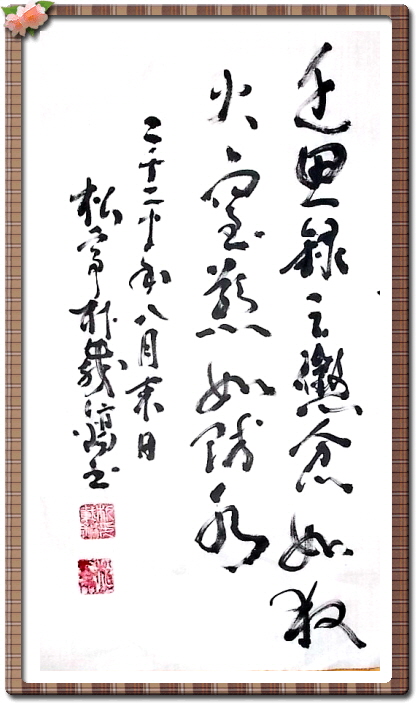 近思錄云懲忿如救
火窒慾如防水
二千二十年八月末日
松亭朴書